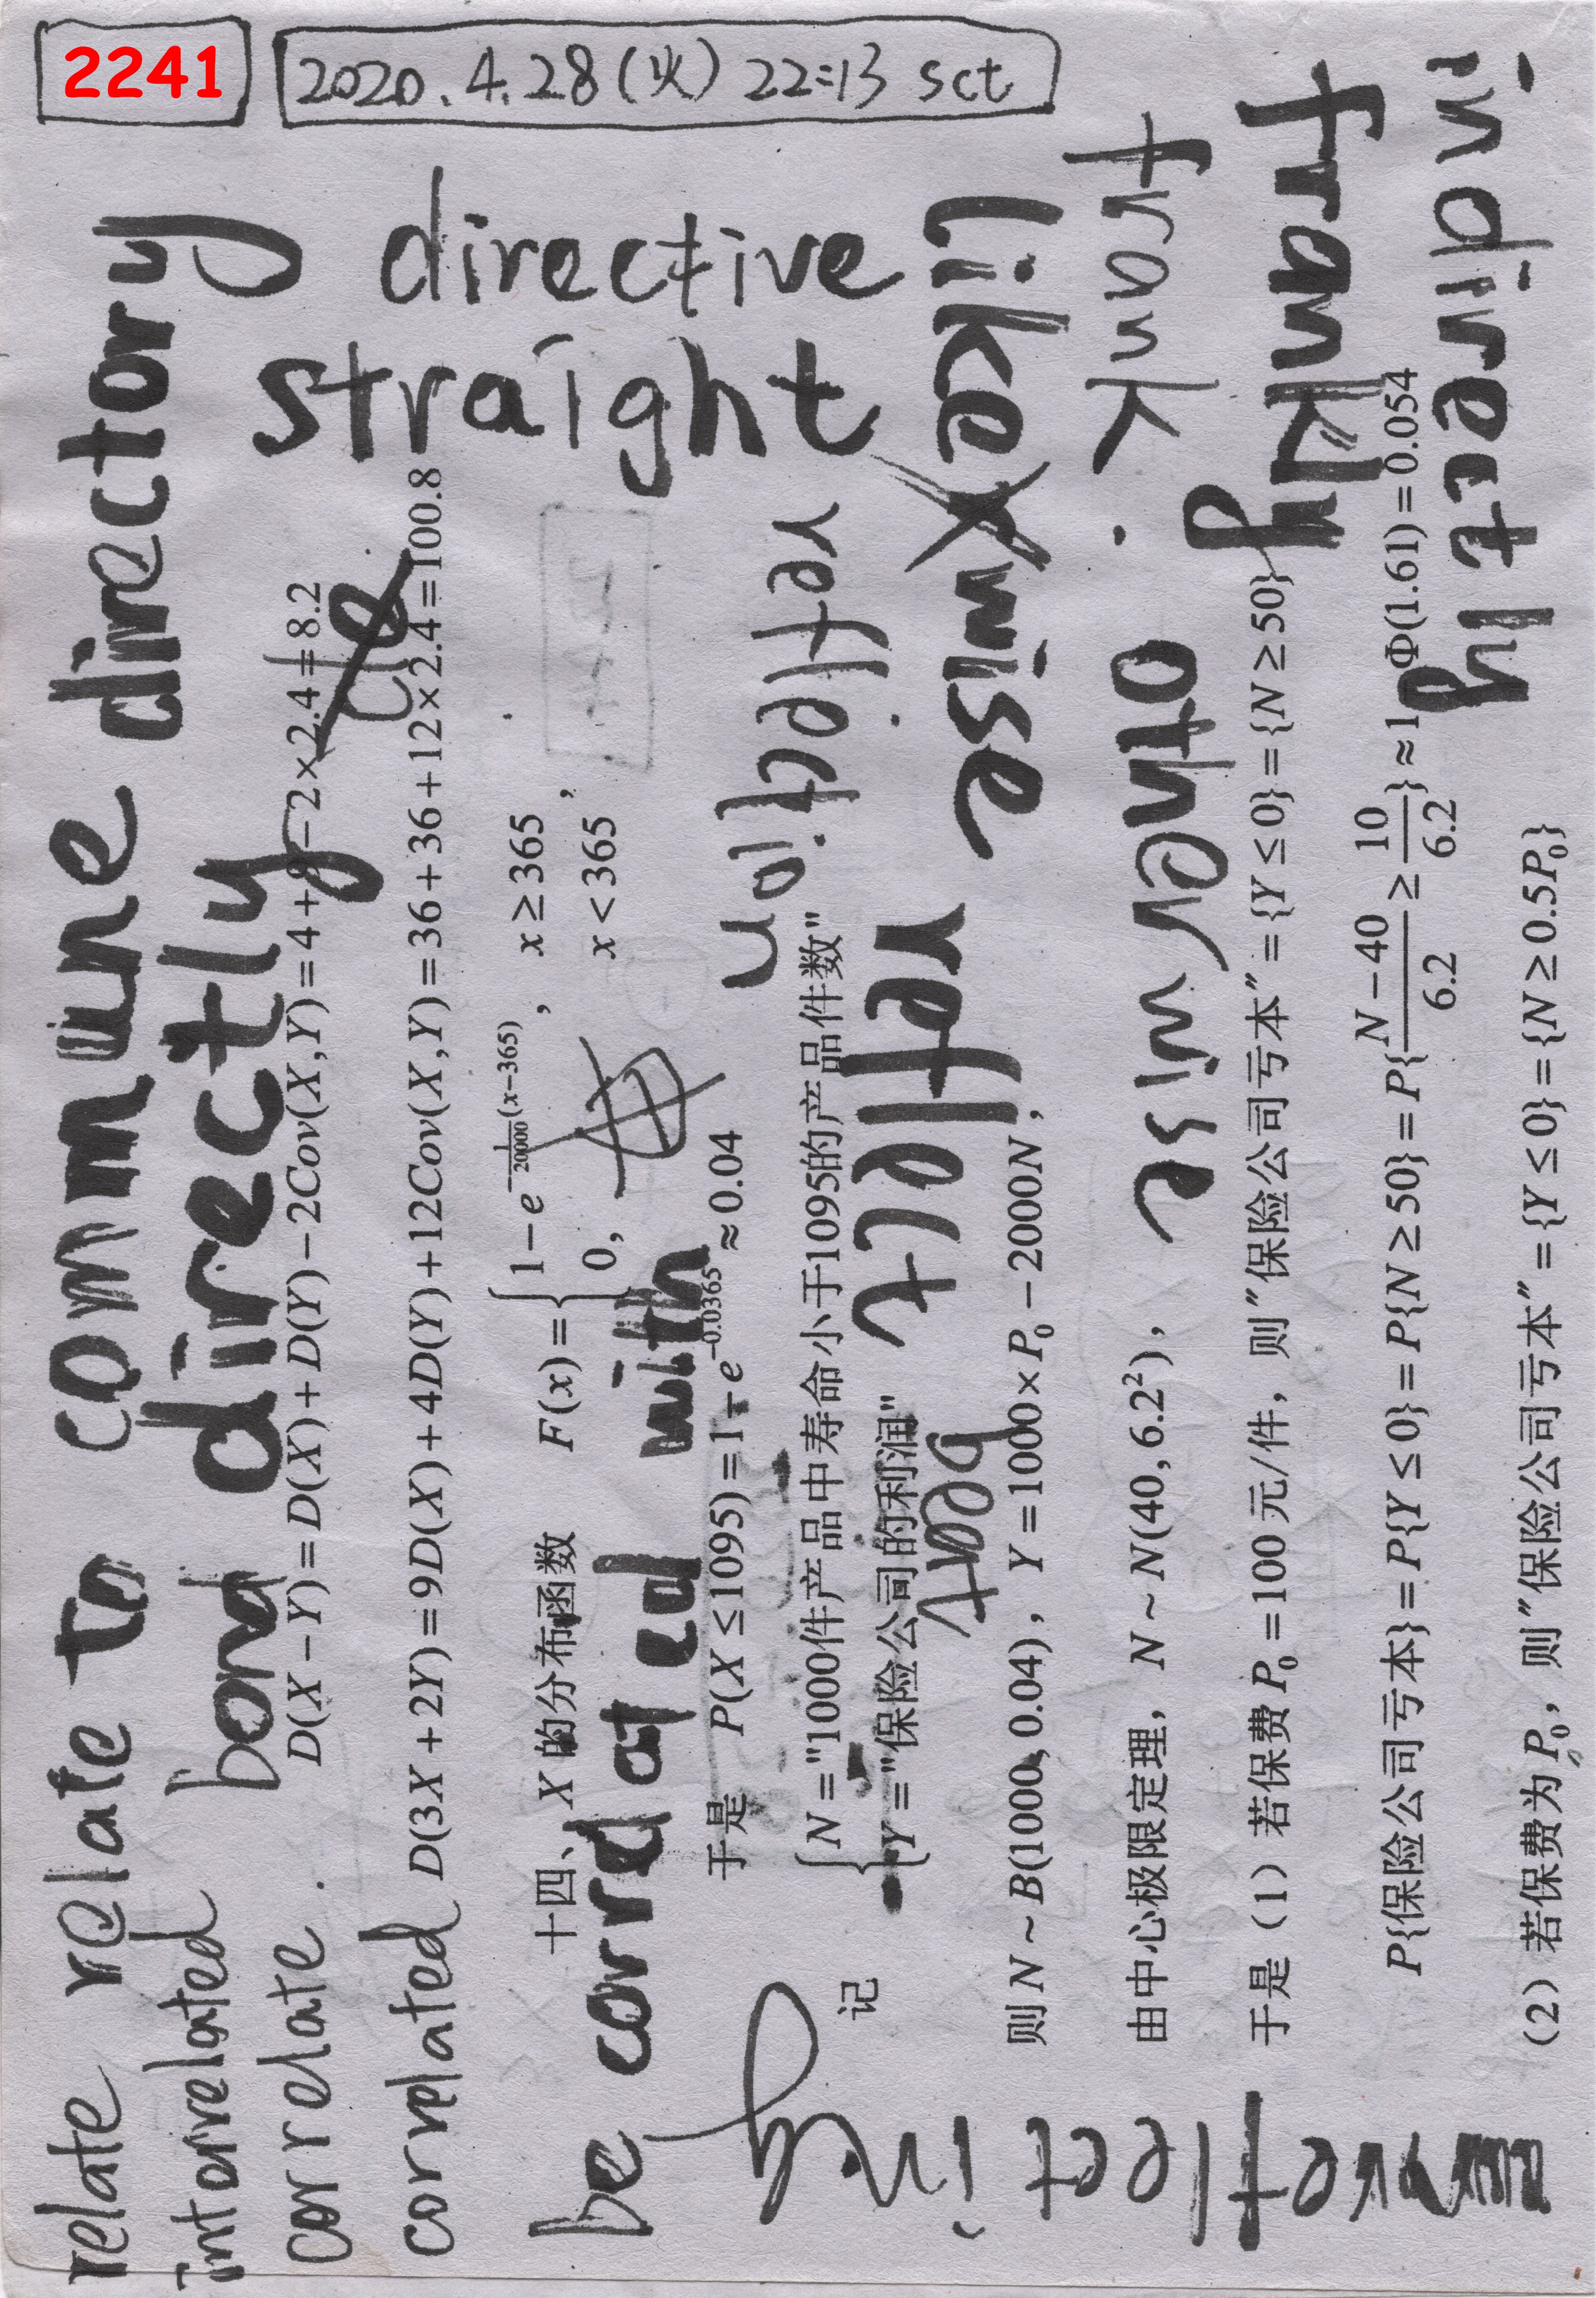 2241
2020.4.28(火) 22:13 sct
relate relate to commune directory
interrelated bond directly
correlate.
correlated
be correlated with
directive
straight
reflection
reflect
beat
likewise
otherwise
frank.
frankly
indirectly
reflecting
D(X−Y)=D(X)+D(Y)−2Cov(X,Y)=4+9−2×2.4=8.2
D(3X+2Y)=9D(X)+4D(Y)+12Cov(X,Y)=36+36+12×2.4=100.8
十四、X 的分布函数 F(x)={1−e^{−\frac{1}{20000}(x−365)}, x≥365
0, x<365,
于是 P(X≤1095)=1−e^{−0.0365}≈0.04
记 {N="1000件产品中寿命小于1095的产品件数"
Y="保险公司的利润"
则 N~B(1000,0.04), Y=1000×P₀−2000N,
由中心极限定理, N~N(40,6.2²),
于是(1)若保费 P₀=100 元/件, 则"保险公司亏本"={Y≤0}={N≥50}
P{保险公司亏本}=P{Y≤0}=P{N≥50}=P{\frac{N−40}{6.2}≥\frac{10}{6.2}}≈1−Φ(1.61)=0.054
(2)若保费为 P₀, 则"保险公司亏本"={Y≤0}={N≥0.5P₀}